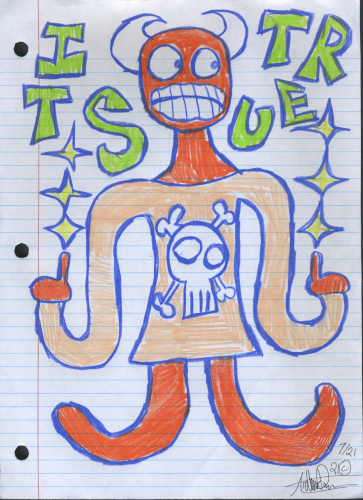 ITS
TRUE
7/21